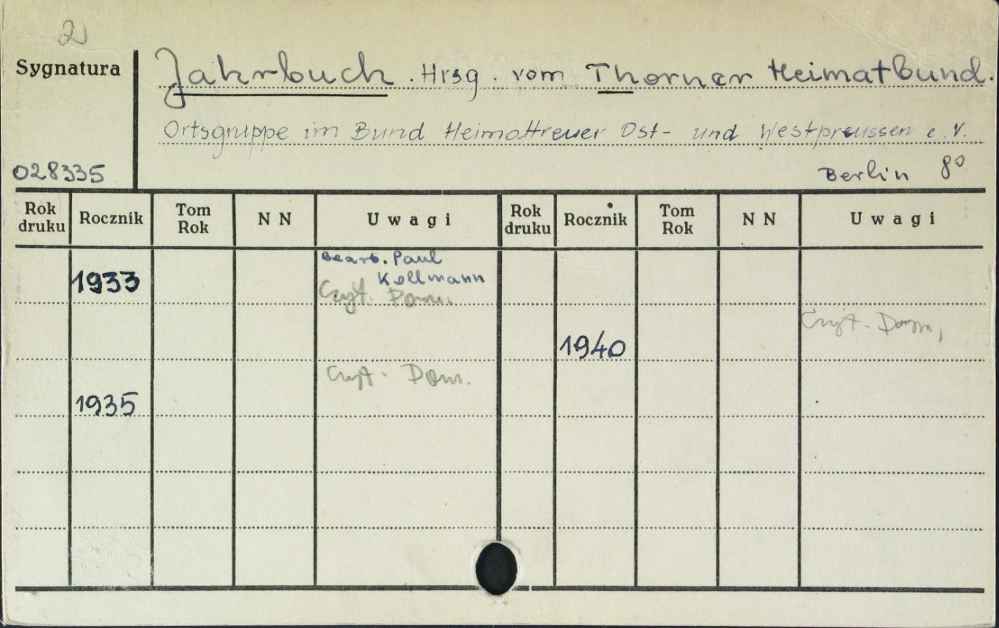 2
Sygnatura
Jahrbuch. Hrsg. vom Thorner Heimatbund.
Ortsgruppe im Bund Heimattreuer Ost- und Westpreussen e.V.
028335
Berlin 8°
Rok druku Rocznik Tom Rok N N Uwagi Rok druku Rocznik Tom Rok N N Uwagi
Bearb. Paul
1933 Kollmann
Czyt. Pom.
Czyt. Pom.
1940
Czyt. Pom.
1935